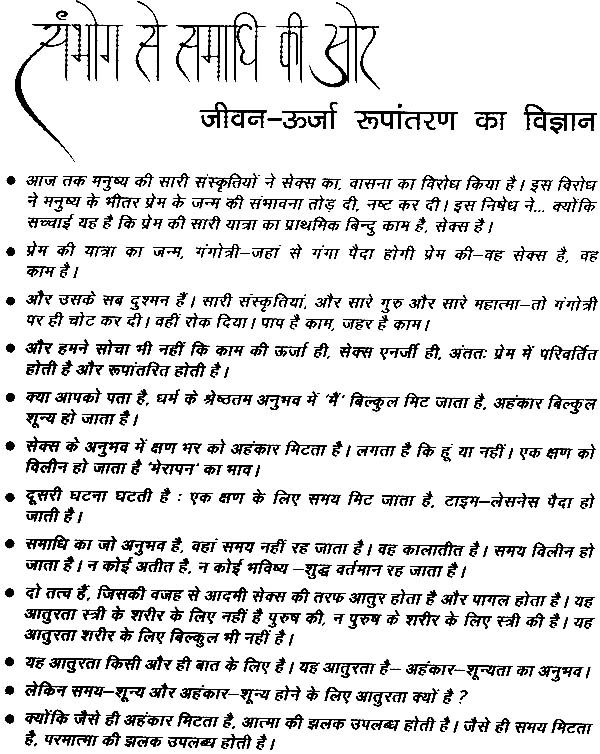 संभोग से समाधि की ओर
जीवन-ऊर्जा रूपांतरण का विज्ञान
● आज तक मनुष्य की सारी संस्कृतियों ने सेक्स का, वासना का विरोध किया है। इस विरोध
ने मनुष्य के भीतर प्रेम के जन्म की संभावना तोड़ दी, नष्ट कर दी। इस निषेध ने... क्योंकि
सच्चाई यह है कि प्रेम की सारी यात्रा का प्राथमिक बिन्दु काम है, सेक्स है।
● प्रेम की यात्रा का जन्म, गंगोत्री—जहां से गंगा पैदा होगी प्रेम की—वह सेक्स है, वह
काम है।
● और उसके सब दुश्मन हैं। सारी संस्कृतियां, और सारे गुरु और सारे महात्मा—तो गंगोत्री
पर ही चोट कर दी। वहीं रोक दिया। पाप है काम, जहर है काम।
● और हमने सोचा भी नहीं कि काम की ऊर्जा ही, सेक्स एनर्जी ही, अंततः प्रेम में परिवर्तित
होती है और रूपांतरित होती है।
● क्या आपको पता है, धर्म के श्रेष्ठतम अनुभव में 'मैं' बिल्कुल मिट जाता है, अहंकार बिल्कुल
शून्य हो जाता है।
● सेक्स के अनुभव में क्षण भर को अहंकार मिटता है। लगता है कि हूं या नहीं। एक क्षण को
विलीन हो जाता है 'मेरापन' का भाव।
● दूसरी घटना घटती है : एक क्षण के लिए समय मिट जाता है, टाइम—लेसनेस पैदा हो
जाती है।
● समाधि का जो अनुभव है, वहां समय नहीं रह जाता है। वह कालातीत है। समय विलीन हो
जाता है। न कोई अतीत है, न कोई भविष्य —शुद्ध वर्तमान रह जाता है।
● दो तत्व हैं, जिसकी वजह से आदमी सेक्स की तरफ आतुर होता है और पागल होता है। यह
आतुरता स्त्री के शरीर के लिए नहीं है पुरुष की, न पुरुष के शरीर के लिए स्त्री की है। यह
आतुरता शरीर के लिए बिल्कुल भी नहीं है।
● यह आतुरता किसी और ही बात के लिए है। यह आतुरता है— अहंकार—शून्यता का अनुभव।
● लेकिन समय—शून्य और अहंकार—शून्य होने के लिए आतुरता क्यों है ?
● क्योंकि जैसे ही अहंकार मिटता है, आत्मा की झलक उपलब्ध होती है। जैसे ही समय मिटता
है, परमात्मा की झलक उपलब्ध होती है।